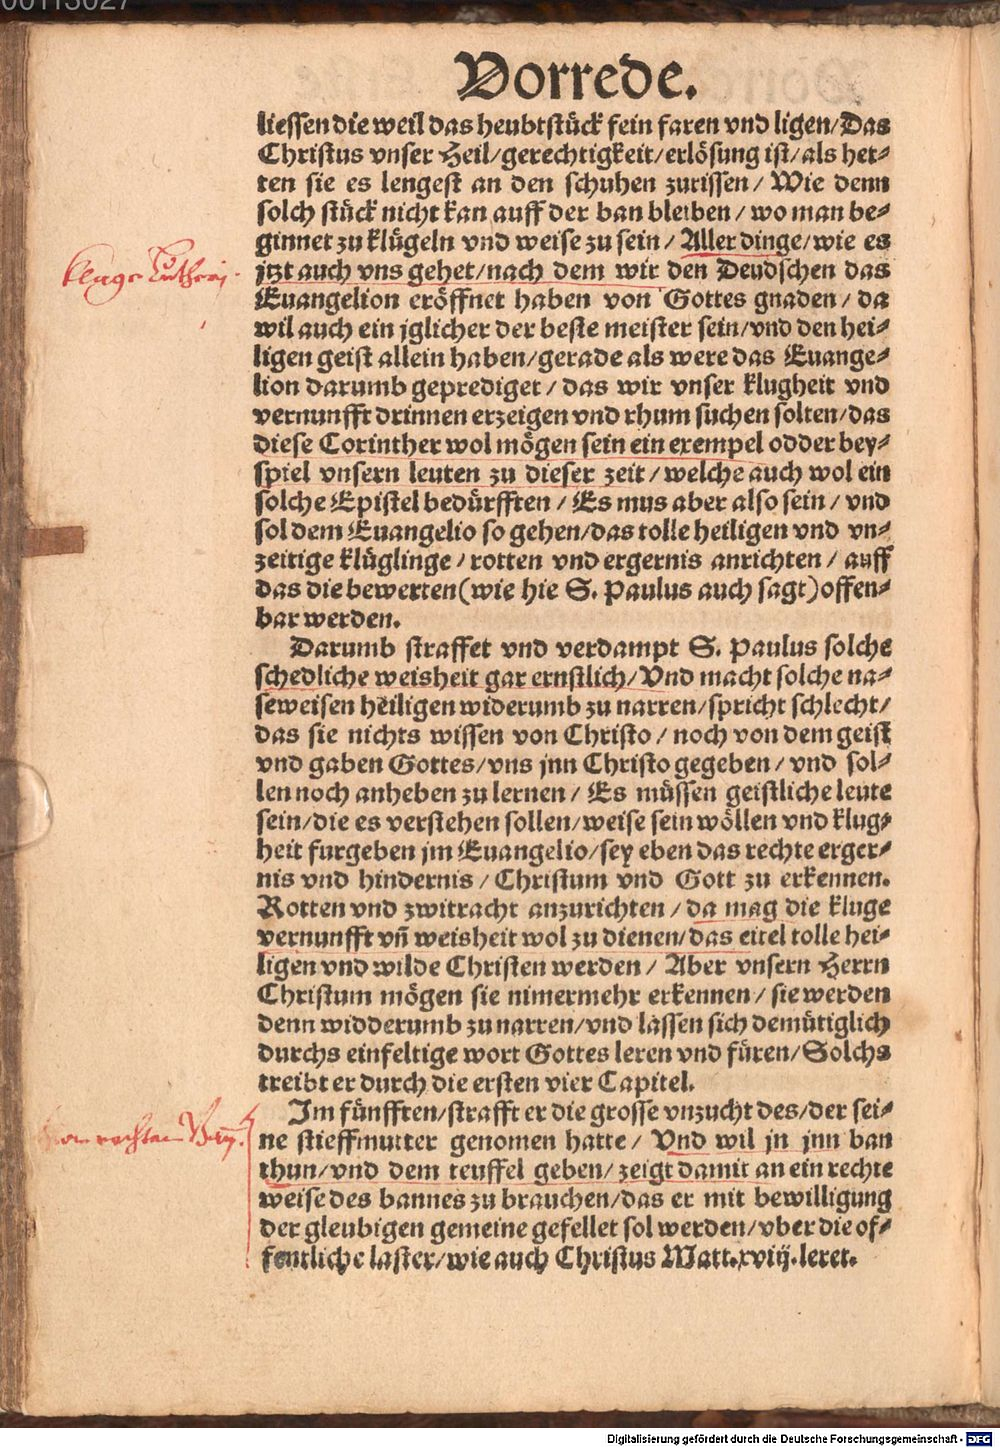 Vorrede.
liessen die weil das heubtstück fein faren vnd ligen/Das
Christus vnser Heil/gerechtigkeit/erlösung ist/als het-
ten sie es lengest an den schuhen zurissen/ Wie denn
solch stück nicht kan auff der ban bleiben/ wo man be-
ginnet zu klügeln vnd weise zu sein/ Aller dinge/wie es
klage Lutheri.
jtzt auch vns gehet/nach dem wir den Deudschen das
Euangelion eröffnet haben von Gottes gnaden/ da
wil auch ein jglicher der beste meister sein/vnd den hei-
ligen geist allein haben/gerade als were das Euange-
lion darumb geprediget/ das wir vnser klugheit vnd
vernunfft drinnen erzeigen vnd rhum suchen solten/das
diese Corinther wol mögen sein ein exempel odder bey-
spiel vnsern leuten zu dieser zeit/ welche auch wol ein
solche Epistel bedürfften/ Es mus aber also sein/ vnd
sol dem Euangelio so gehen/das tolle heiligen vnd vn-
zeitige klüglinge/ rotten vnd ergernis anrichten/ auff
das die bewerten(wie hie S. Paulus auch sagt)offen-
bar werden.
Darumb straffet vnd verdampt S. Paulus solche
schedliche weisheit gar ernstlich/Vnd macht solche na-
seweisen heiligen widerumb zu narren/spricht schlecht/
das sie nichts wissen von Christo/ noch von dem geist
vnd gaben Gottes/vns jnn Christo gegeben/ vnd sol-
len noch anheben zu lernen/ Es müssen geistliche leute
sein/die es verstehen sollen/weise sein wöllen vnd klug-
heit furgeben jm Euangelio/sey eben das rechte erger-
nis vnd hindernis/ Christum vnd Gott zu erkennen.
Rotten vnd zwitracht anzurichten/ da mag die kluge
vernunfft vn̄ weisheit wol zu dienen/das eitel tolle hei-
ligen vnd wilde Christen werden/ Aber vnsern Herrn
Christum mögen sie nimermehr erkennen/ sie werden
denn widderumb zu narren/vnd lassen sich demütiglich
durchs einfeltige wort Gottes leren vnd füren/Solchs
treibt er durch die ersten vier Capitel.
Im fünfften/strafft er die grosse vnzucht des/der sei-
rechten
ne stieffmutter genomen hatte/ Vnd wil jn jnn ban
thun/vnd dem teuffel geben/ zeigt damit an ein rechte
weise des bannes zu brauchen/das er mit bewilligung
der gleubigen gemeine gefellet sol werden/vber die of-
fentliche laster/wie auch Christus Matt.xviij.leret.
Digitalisierung gefördert durch die Deutsche Forschungsgemeinschaft - DFG